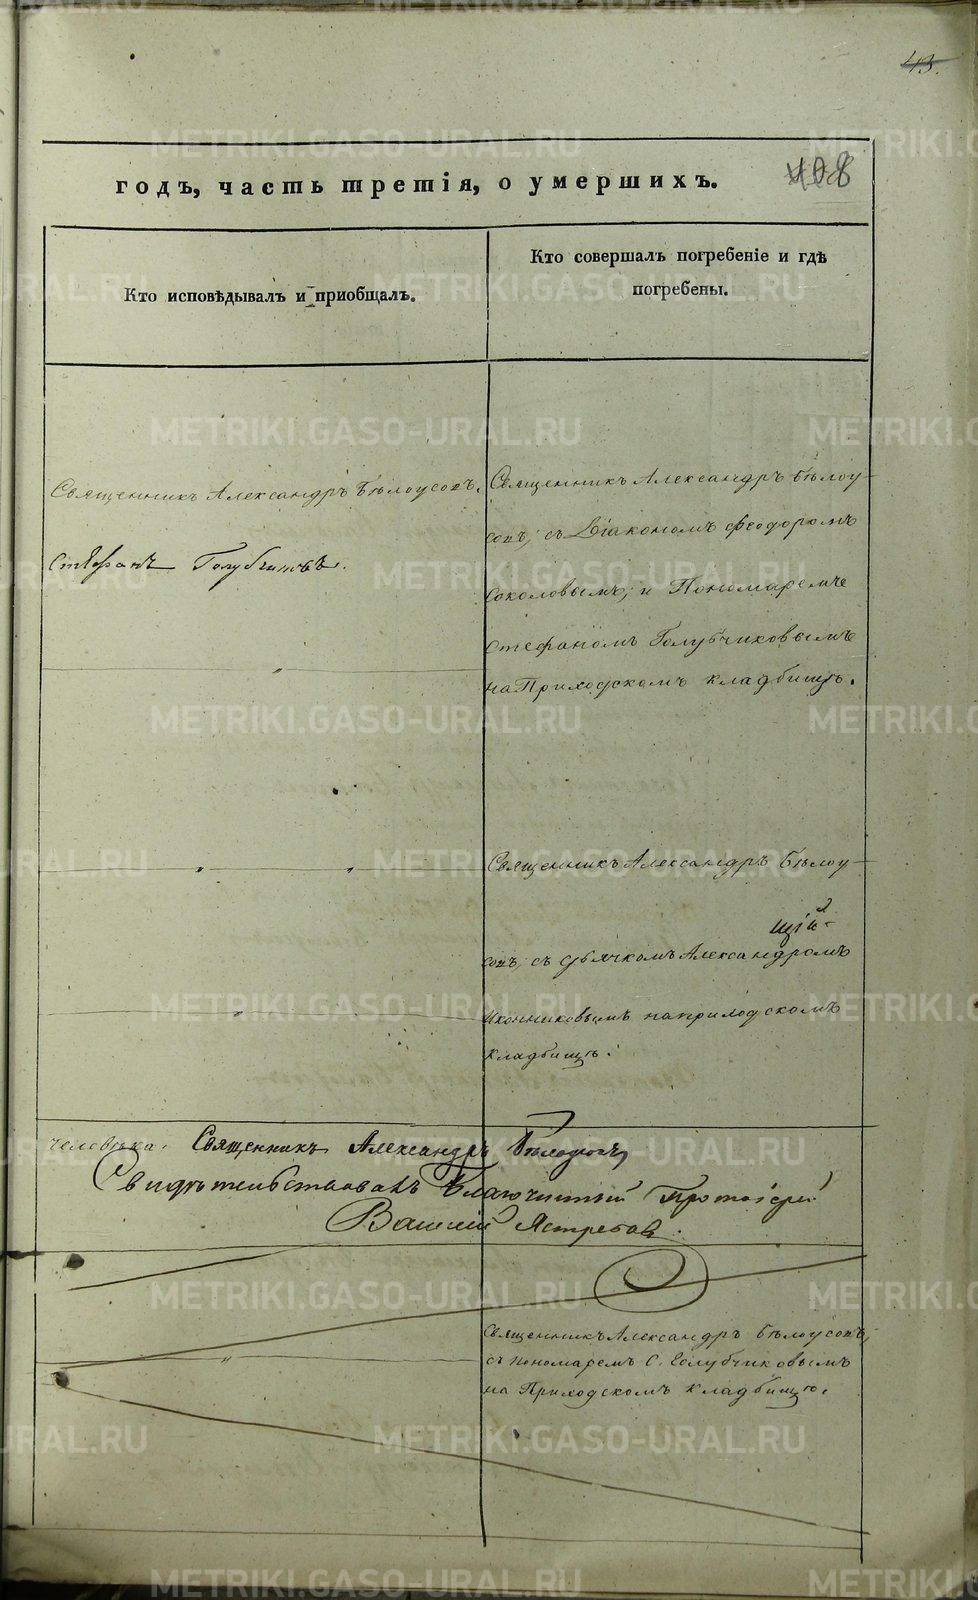 43.
408
годъ, часть третія, о умершихъ.
Кто исповѣдывалъ и приобщалъ.
Кто совершалъ погребеніе и гдѣ
погребены.
Священникъ Александръ Бѣлоусовъ.
Стефанъ Голубчиковъ.
Священникъ Александръ Бѣлоу-
совъ, съ Діакономъ Феодоромъ
Соколовымъ, и Пономаремъ
Стефаномъ Голубчиковымъ
на Приходскомъ кладбищѣ.
Священникъ Александръ Бѣлоу-
совъ, съ дьячкомъ Александромъ
Иконниковымъ на приходскомъ
кладбищѣ.
человѣка. Священникъ Александръ Бѣлоусовъ
Свидѣтельствовалъ Благочинный Протоіерей
Василій Ястребов
Священникъ Александръ Бѣлоусовъ,
съ пономаремъ С. Голубчиковымъ
на Приходскомъ кладбищѣ.
METRIKI.GASO-URAL.RU